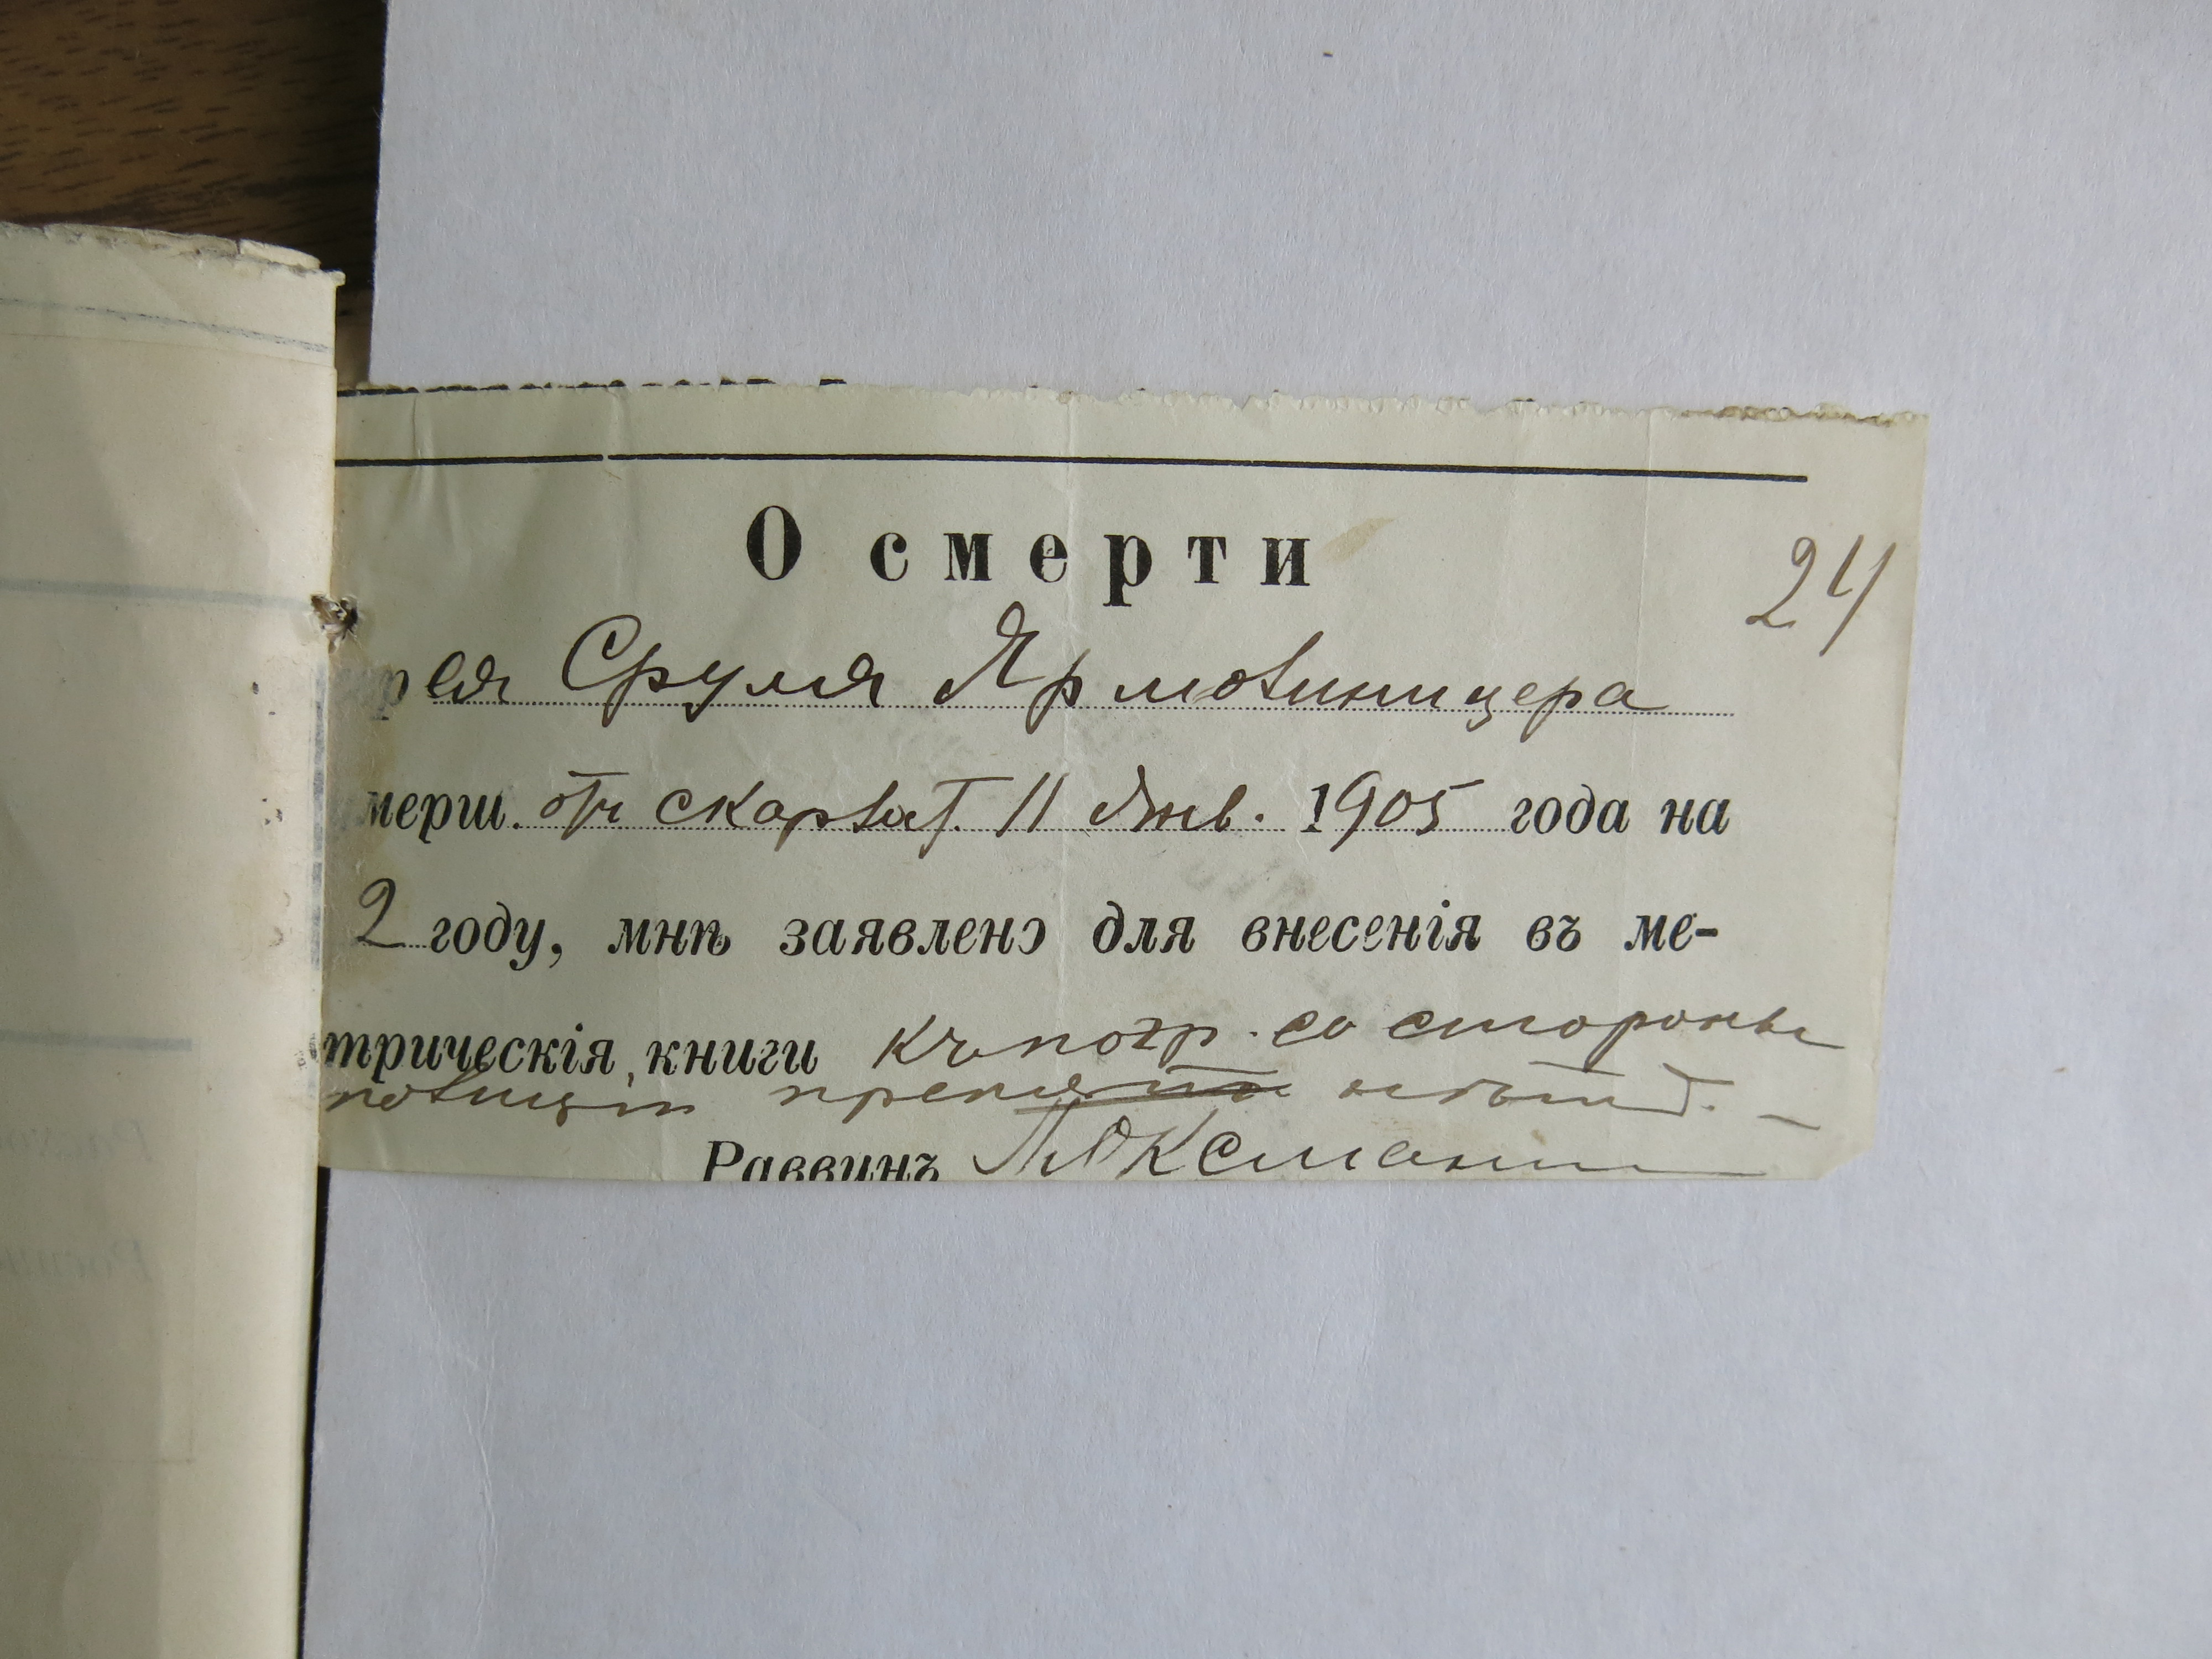 О смерти
24
рея Сруля Ярмовиницера
мерш. отъ скарлат. 11 Янв. 1905 года на
2 году, мнѣ заявлено для внесенія въ ме-
трическія книги къ погр. со стороны
полиціи препят. нѣтъ.
Раввинъ